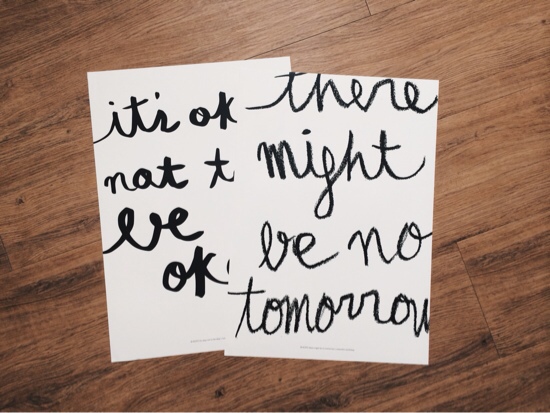 it's ok
not t
be
ok
there
might
be no
tomorrow